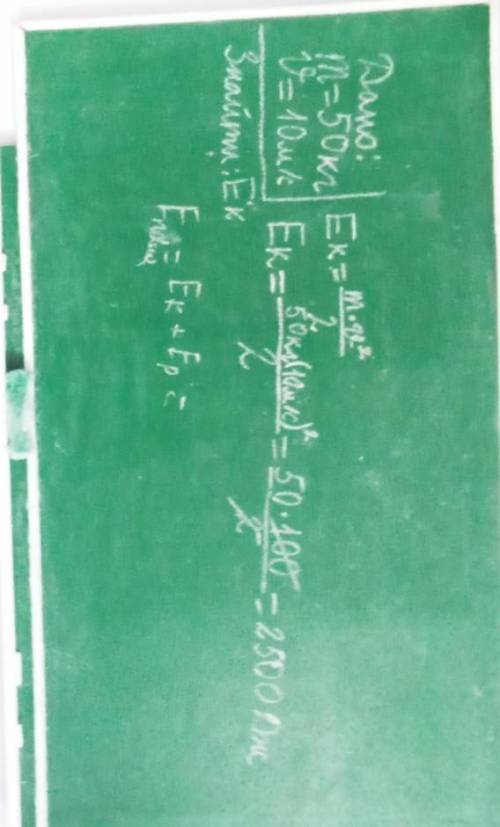 Дано:
m = 50кг
v = 10м/с
Знайти: Eк
Eк = m·v²/2
Eк = 50кг(10м/с)²/2 = 50·100/2 = 2500 Дж
E = Eк + Ep =